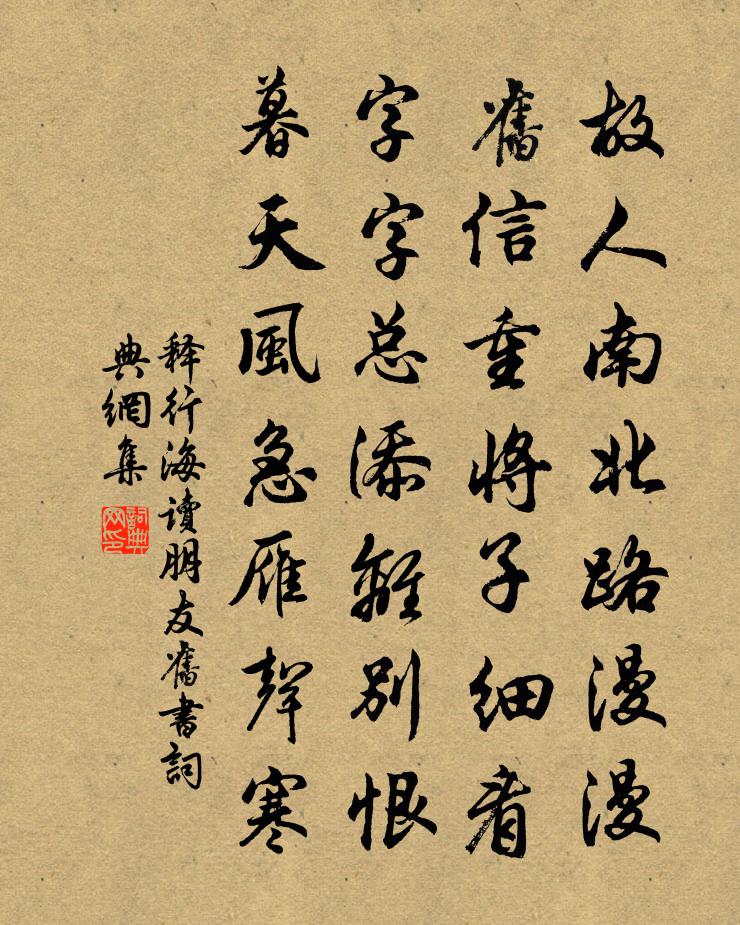 故人南北路漫漫
舊信重將子細看
字字总添離別恨
暮天風急雁聲寒
释行海讀朋友舊書詞
典網集
詞典
网印